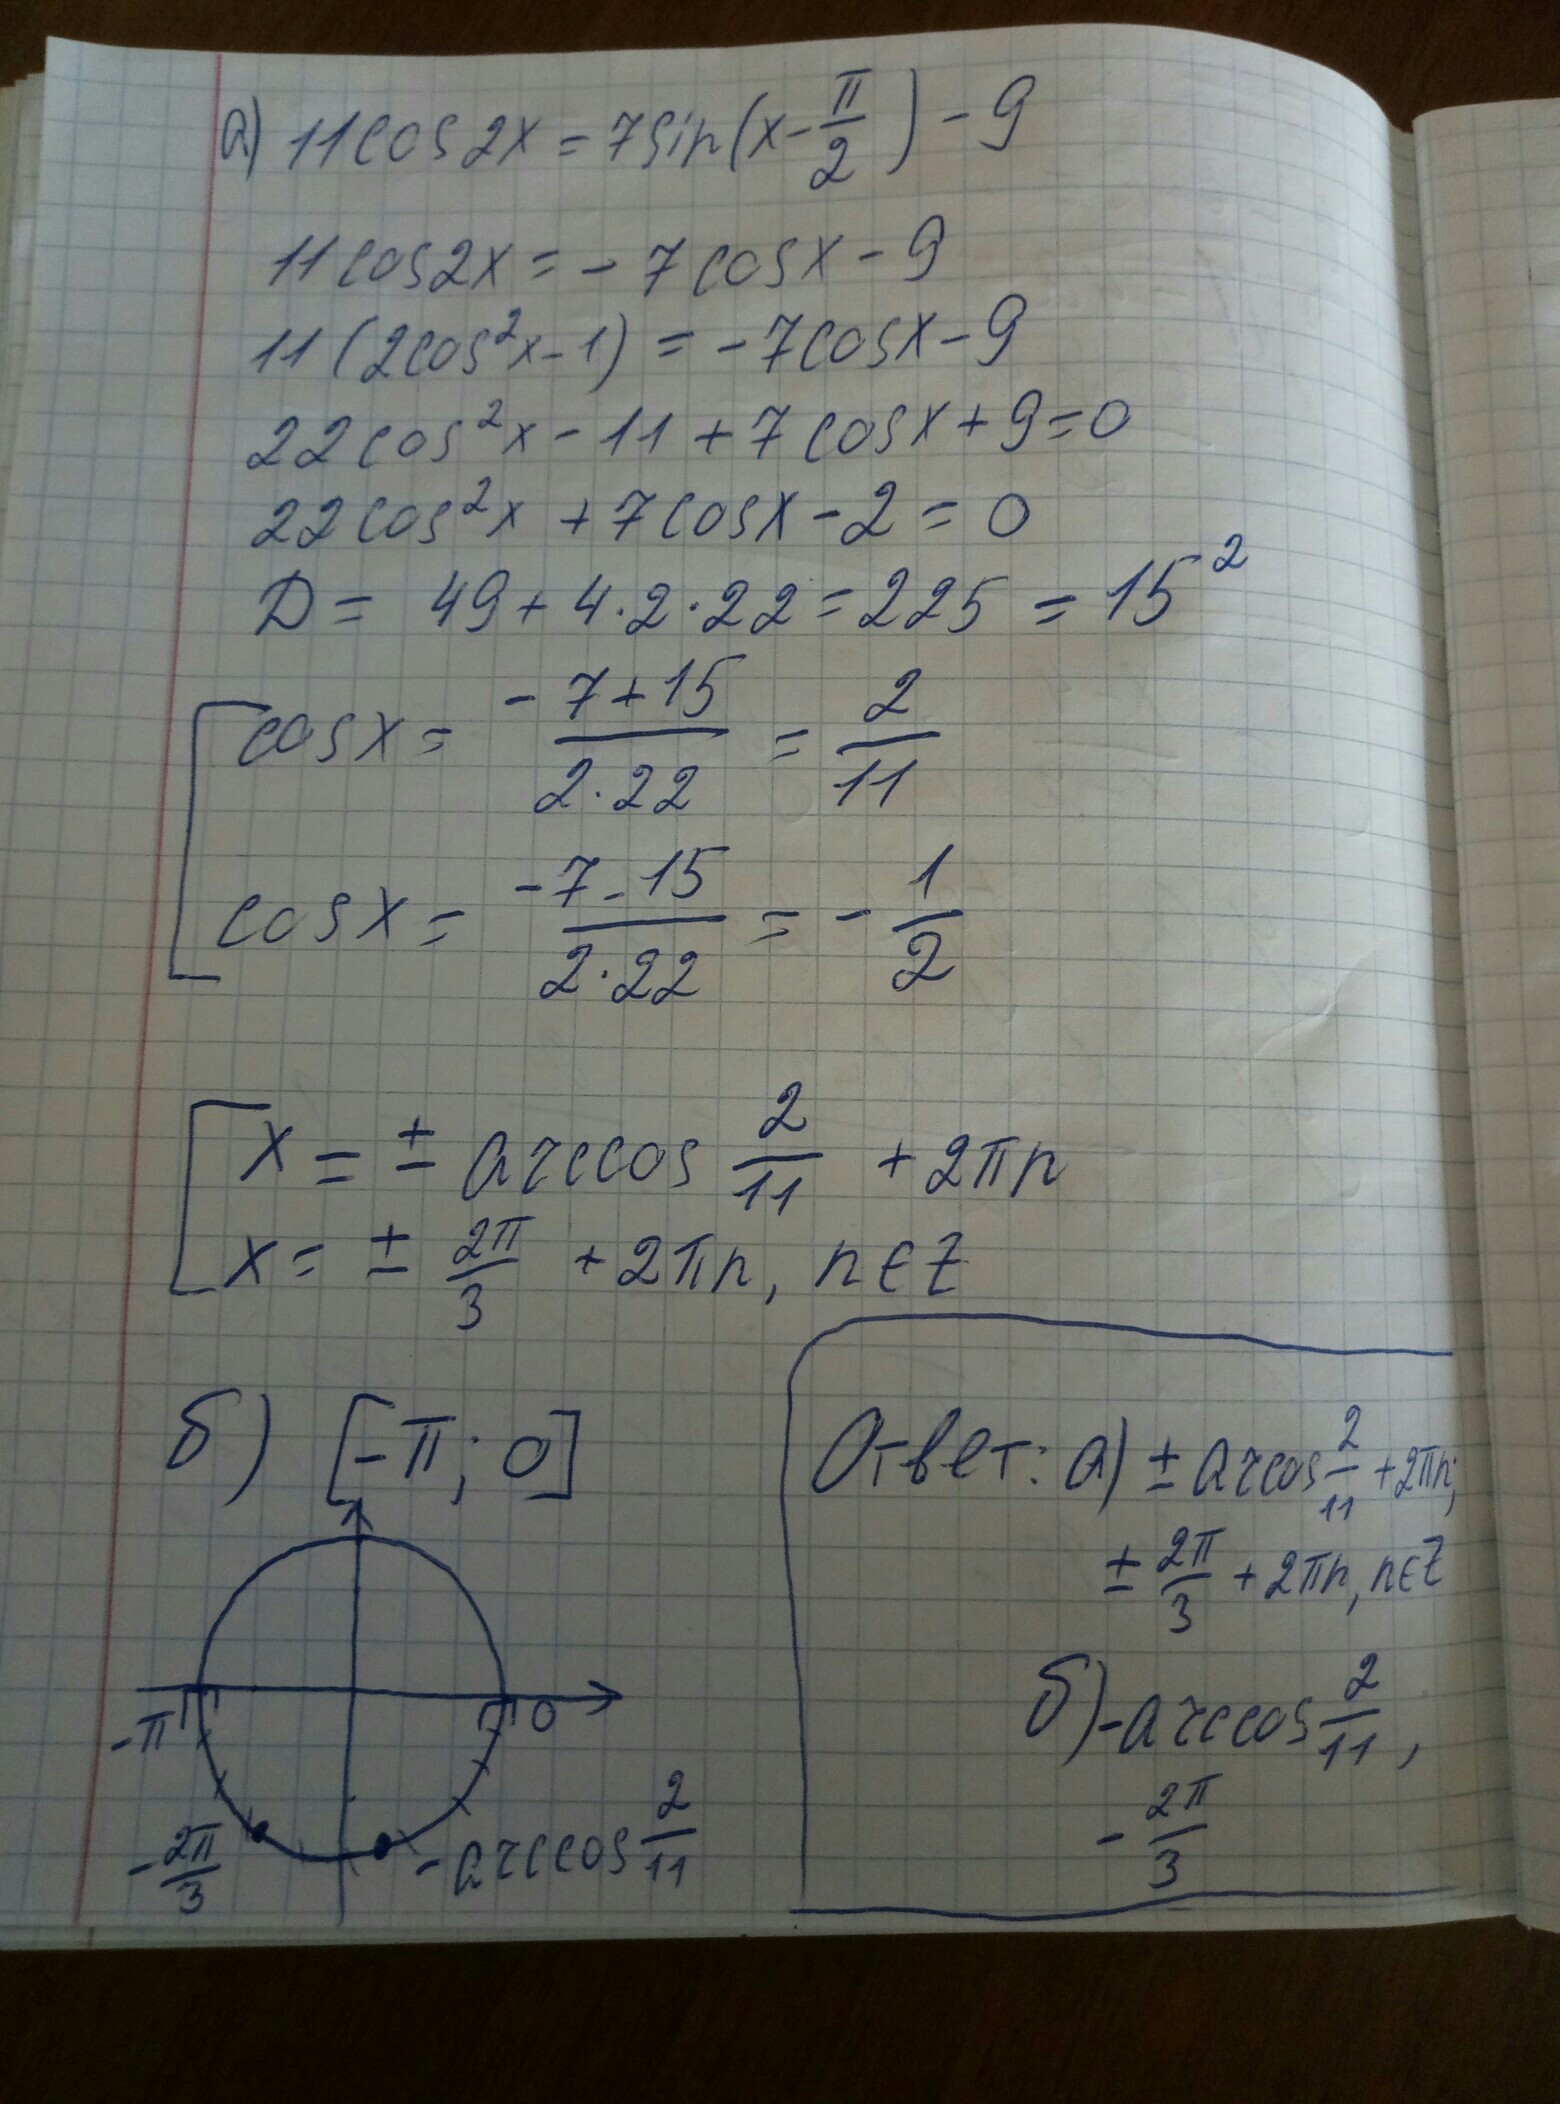 а) 11cos2x = 7sin(x - π/2) - 9
11cos2x = - 7cosx - 9
11(2cos²x - 1) = - 7cosx - 9
22cos²x - 11 + 7cosx + 9 = 0
22cos²x + 7cosx - 2 = 0
D = 49 + 4·2·22 = 225 = 15²
[cosx = (-7+15)/(2·22) = 2/11
cosx = (-7-15)/(2·22) = - 1/2
[x = ± arccos 2/11 + 2πn
x = ± 2π/3 + 2πn, n∈Z
б) [-π; 0]
-π
0
-2π/3
-arccos 2/11
Ответ: а) ± arccos 2/11 + 2πn;
± 2π/3 + 2πn, n∈Z
б) -arccos 2/11,
- 2π/3